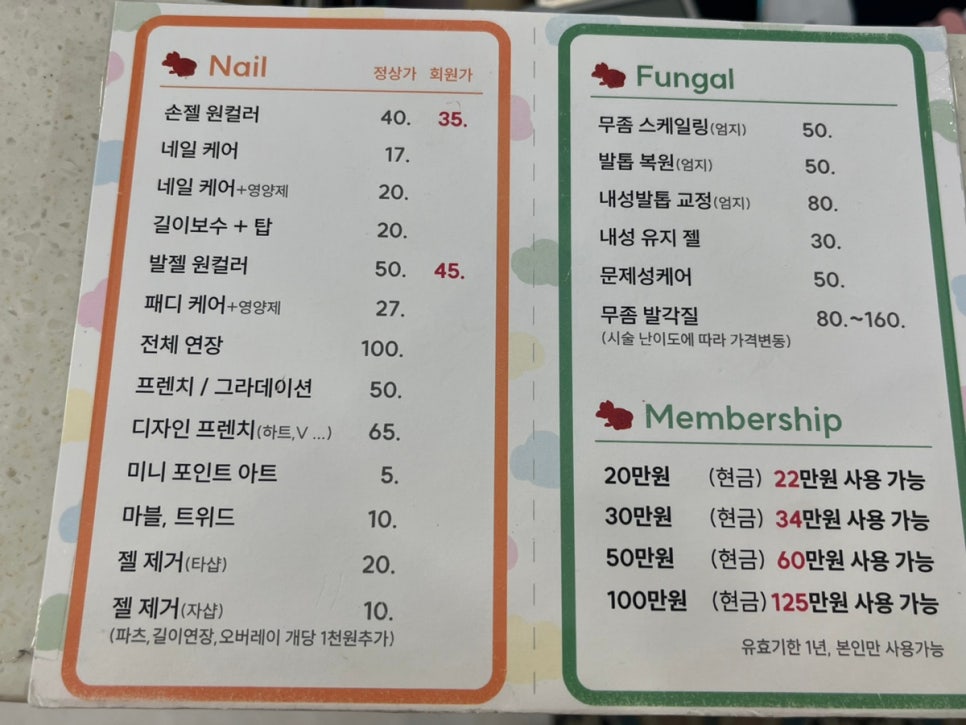 Nail 정상가 회원가
손젤 원컬러 40. 35.
네일 케어 17.
네일 케어+영양제 20.
길이보수 + 탑 20.
발젤 원컬러 50. 45.
패디 케어+영양제 27.
전체 연장 100.
프렌치 / 그라데이션 50.
디자인 프렌치(하트,V ...) 65.
미니 포인트 아트 5.
마블, 트위드 10.
젤 제거(타샵) 20.
젤 제거(자샵) 10.
(파츠,길이연장,오버레이 개당 1천원추가)
Fungal
무좀 스케일링(엄지) 50.
발톱 복원(엄지) 50.
내성발톱 교정(엄지) 80.
내성 유지 젤 30.
문제성케어 50.
무좀 발각질 80.~160.
(시술 난이도에 따라 가격변동)
Membership
20만원 (현금) 22만원 사용 가능
30만원 (현금) 34만원 사용 가능
50만원 (현금) 60만원 사용 가능
100만원 (현금) 125만원 사용 가능
유효기한 1년, 본인만 사용가능